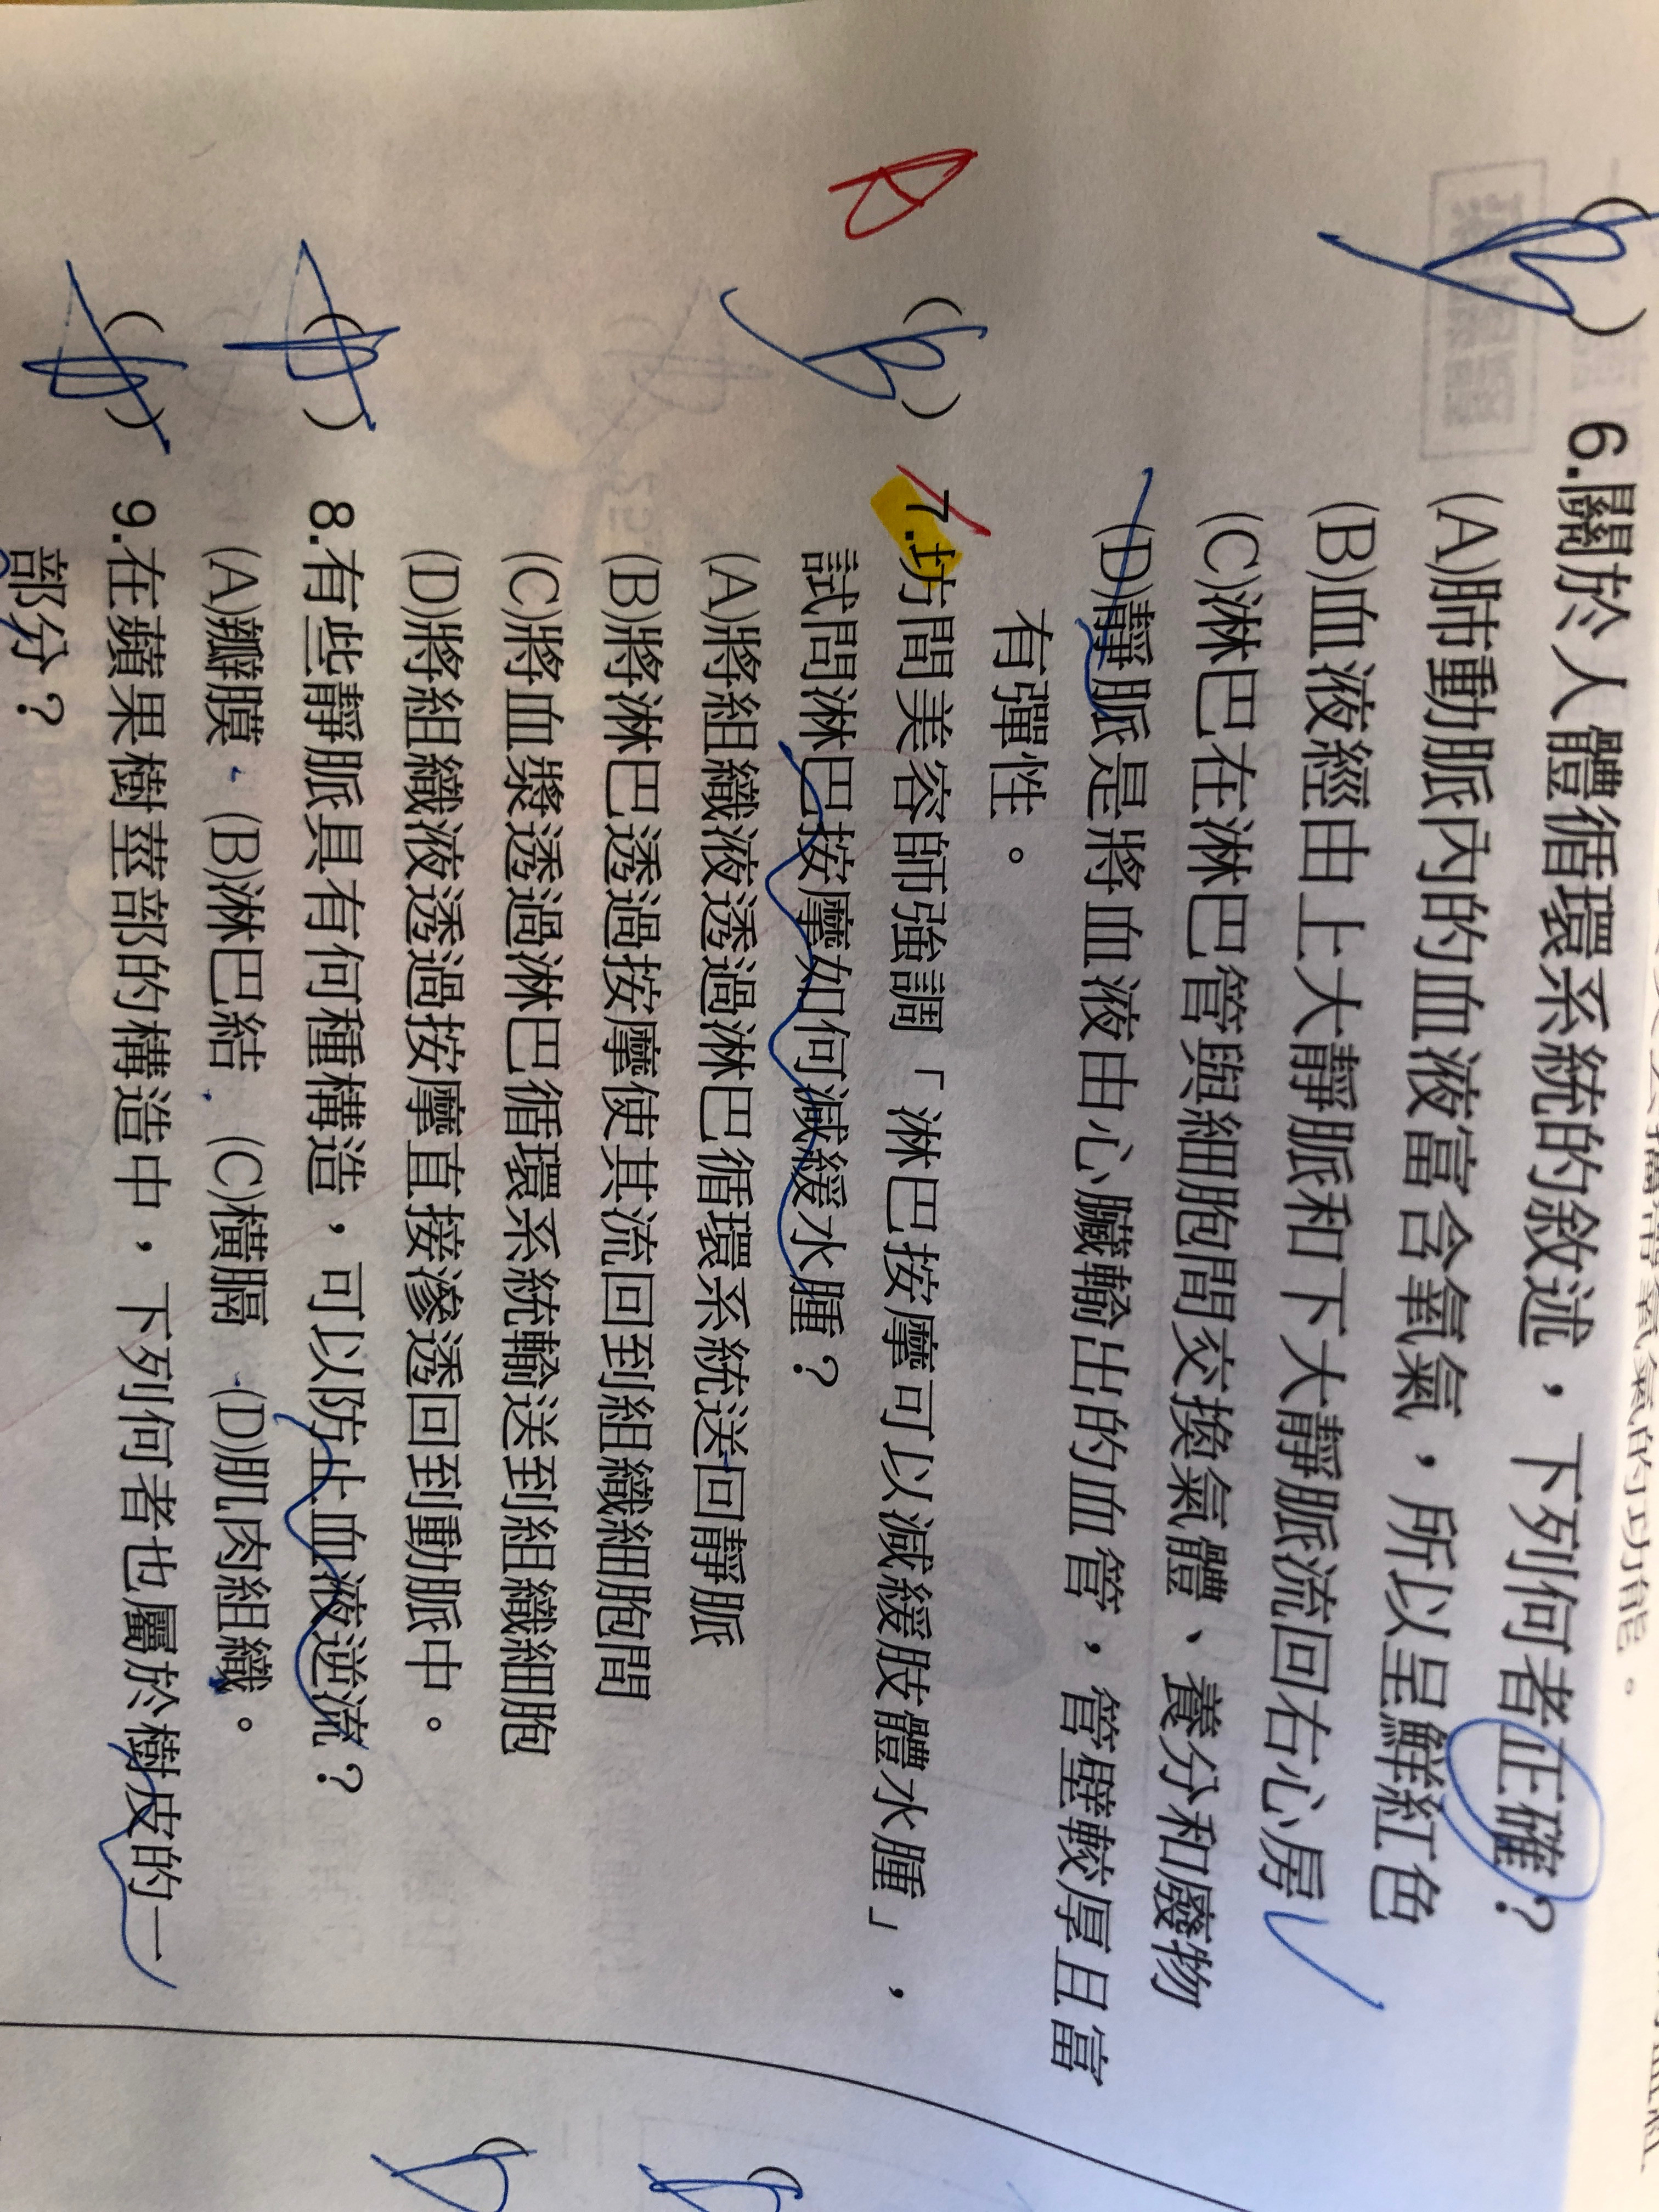 B
( ) 6.關於人體循環系統的敘述，下列何者正確？
(A)肺動脈內的血液富含氧氣，所以呈鮮紅色
(B)血液經由上大靜脈和下大靜脈流回右心房
(C)淋巴在淋巴管與細胞間交換氣體、養分和廢物
(D)靜脈是將血液由心臟輸出的血管，管壁較厚且富
有彈性。
A
B
( ) 7.坊間美容師強調「淋巴按摩可以減緩肢體水腫」，
試問淋巴按摩如何減緩水腫？
(A)將組織液透過淋巴循環系統送回靜脈
(B)將淋巴透過按摩使其流回到組織細胞間
(C)將血漿透過淋巴循環系統輸送到組織細胞
(D)將組織液透過按摩直接滲透回到動脈中。
A
( ) 8.有些靜脈具有何種構造，可以防止血液逆流？
(A)瓣膜 (B)淋巴結 (C)橫膈 (D)肌肉組織。
( ) 9.在蘋果樹莖部的構造中，下列何者也屬於樹皮的一
部分？